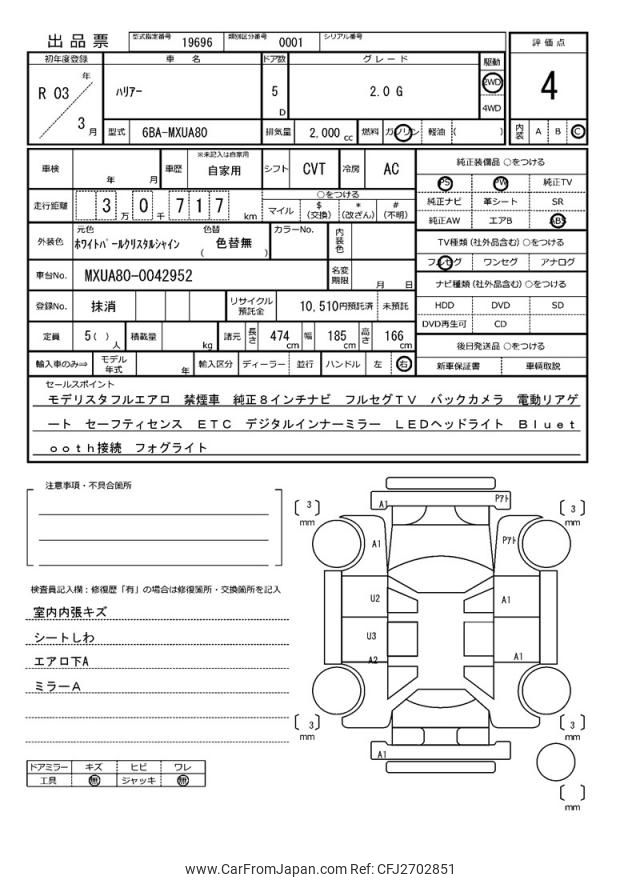 出品票
型式指定番号 19696 類別区分番号 0001 シリアル番号
評価点
4
初年度登録 車名 ドア数 グレード 駆動
R 03 年 3 月
ハリアー 5 D 2.0 G 2WD
4WD
型式 6BA-MXUA80 排気量 2,000 cc 燃料 ガソリン 軽油 ( )
内装 A B C
車検 年 月 車歴 ※未記入は自家用 自家用 シフト CVT 冷房 AC
走行距離 3 万 0 千 7 1 7 km
○をつける
マイル $ (交換) * (改ざん) # (不明)
外装色 元色 ホワイトパールクリスタルシャイン 色替 ( 色替無 ) カラーNo. 内装色
車台No. MXUA80-0042952 名変期限 月 日
登録No. 抹消 リサイクル預託金 10,510円預託済 未預託
定員 5( ) 人 積載量 kg 諸元 長さ 474 cm 幅 185 cm 高さ 166 cm
輸入車のみ⇒ モデル年式 年 輸入区分 ディーラー 並行 ハンドル 左 右
純正装備品 ○をつける
PS PW 純正TV
純正ナビ 革シート SR
純正AW エアB ABS
TV種類 (社外品含む) ○をつける
フルセグ ワンセグ アナログ
ナビ種類 (社外品含む) ○をつける
HDD DVD SD
DVD再生可 CD
後日発送品 ○をつける
新車保証書 車輌取説
セールスポイント
モデリスタフルエアロ 禁煙車 純正８インチナビ フルセグＴＶ バックカメラ 電動リアゲ
ート セーフティセンス ＥＴＣ デジタルインナーミラー ＬＥＤヘッドライト Ｂｌｕｅｔ
ｏｏｔｈ接続 フォグライト
注意事項・不具合箇所
検査員記入欄：修復歴「有」の場合は修復箇所・交換箇所を記入
室内内張キズ
シートしわ
エアロ下A
ミラーA
ドアミラー キズ ヒビ ワレ
工具 無 ジャッキ 無
3 mm
A1 Pｱﾄ
3 mm
A1 Pｱﾄ
U2 A1
U3
A2 A1
3 mm
3 mm
A1
mm
www.CarFromJapan.com Ref: CFJ2702851